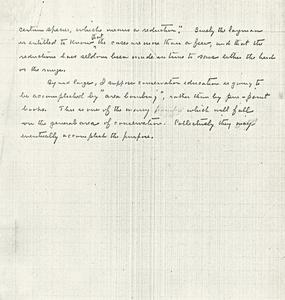 certain species, which means a reduction." Surely the layman
is entitled to know that the cases are more than a few, and that the
reductions have seldom been made in time to save either the herds
or the range.
By and large, I suppose conservation education is going to
be accomplished by "area bombing", rather than by pin-point
books. This is one of the many which will fall
on the general area of conservation. Collectively they may
eventually accomplish the purpose.